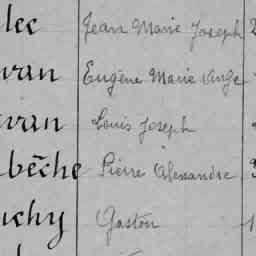 lec Jean Marie Joseph 2
van Eugène Marie Ange
van Louis Joseph
bèche Pierre Alexandre 3
uchy Gaston 1